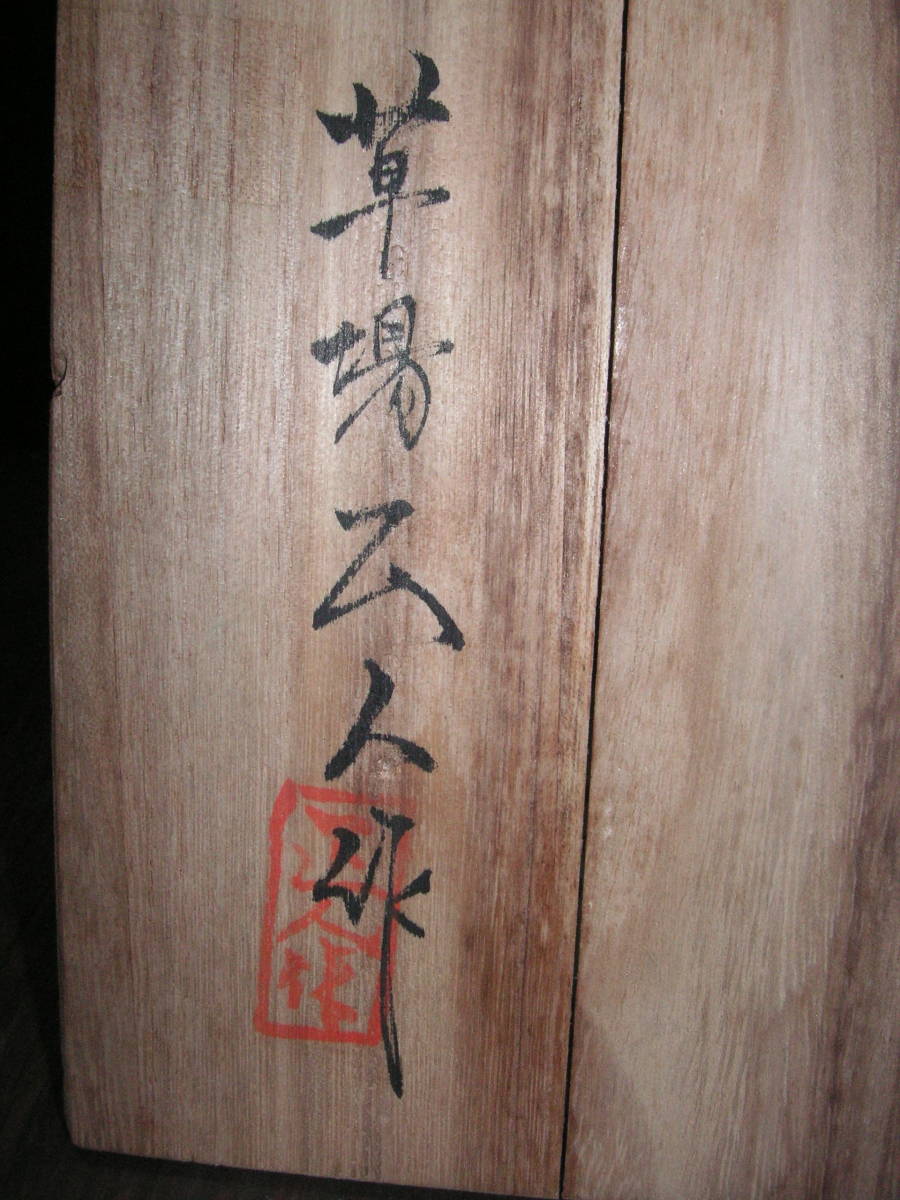 草場云人作